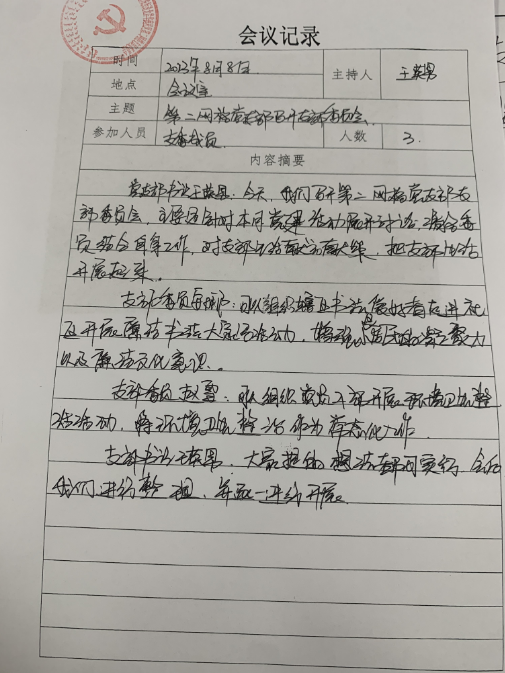 会议记录
时间 2023年8月8日 主持人 王英男
地点 会议室
主题 第二网格党支部召开支部委员会
参加人员 支委成员 人数 3.
内容摘要
党支部书记王英男：今天，我们召开第二网格党支部支
部委员会，主要是针对本月党建活动展开讨论，请各委
员结合自身工作，对支部活动献言献策，把支部活动
开展起来。
支部委员：可以组织辖区书法爱好者在进社
区开展廉洁书法大家写活动，增强党员团结凝聚力
以及廉洁文化意识。
支部委员赵雪：可以组织党员干部开展环境卫生整
治活动，将环境卫生整治作为常态化工作。
支部书记王英男：大家提的想法都可实行，会后
我们进行整理，争取一一进行开展。